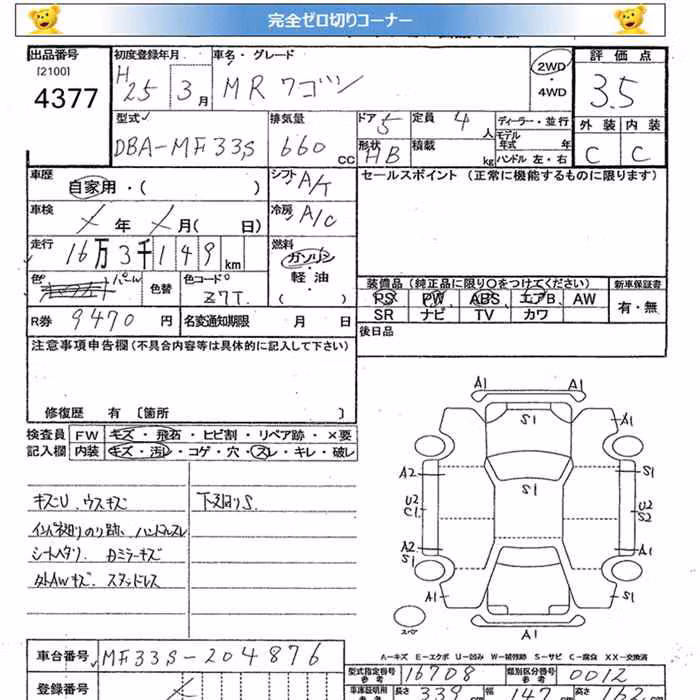 完全ゼロ切りコーナー
出品番号
[2100]
4377
初度登録年月
H25 3月
車名・グレード
MRワゴン
2WD
・
4WD
評価点
3.5
型式
DBA-MF33S
排気量
660 CC
ドア 5
形状 HB
定員 4 人
積載 kg
ディーラー・並行
モデル
年式 年
ハンドル 左・右
外装 内装
C C
車歴
自家用・( )
シフト A/T
セールスポイント (正常に機能するものに限ります)
車検
年 月( 日)
冷房 A/C
走行
16万3千149km
燃料
ガソリン
・
軽油
・
( )
色
パール
色替
色コード
Z7T.
装備品(純正品に限り○をつけてください)
新車保証書
PS PW ABS エアB AW
SR ナビ TV カワ
有・無
R券 9470 円
名変通知期限 月 日
後日品
注意事項申告欄(不具合内容等は具体的に記入して下さい)
修復歴 有 [箇所 ]
検査員
記入欄
FW キズ・飛石・ヒビ割・リペア跡・×要
内装 キズ・汚レ・コゲ・穴・スレ・キレ・破レ
キズU. ウスキズ
下廻りS.
インパネ切りのり跡、ハンドルスレ
シートヘタリ. Dミラーキズ
外AWキズ. スタッドレス
A1 A1
S1
A1
A2 S1
S1
U2
C1
U2
S2
A2
S1
A1
A1 S1
A1
スペア
A-キズ E-エクボ U-凹み W-補修跡 S-サビ C-腐食 XX-交換済
車台番号
MF33S-204876
型式指定番号
参考
16708
類別区分番号
参考
0012
登録番号
車庫証明用
参考
長さ 339 幅 147 高さ